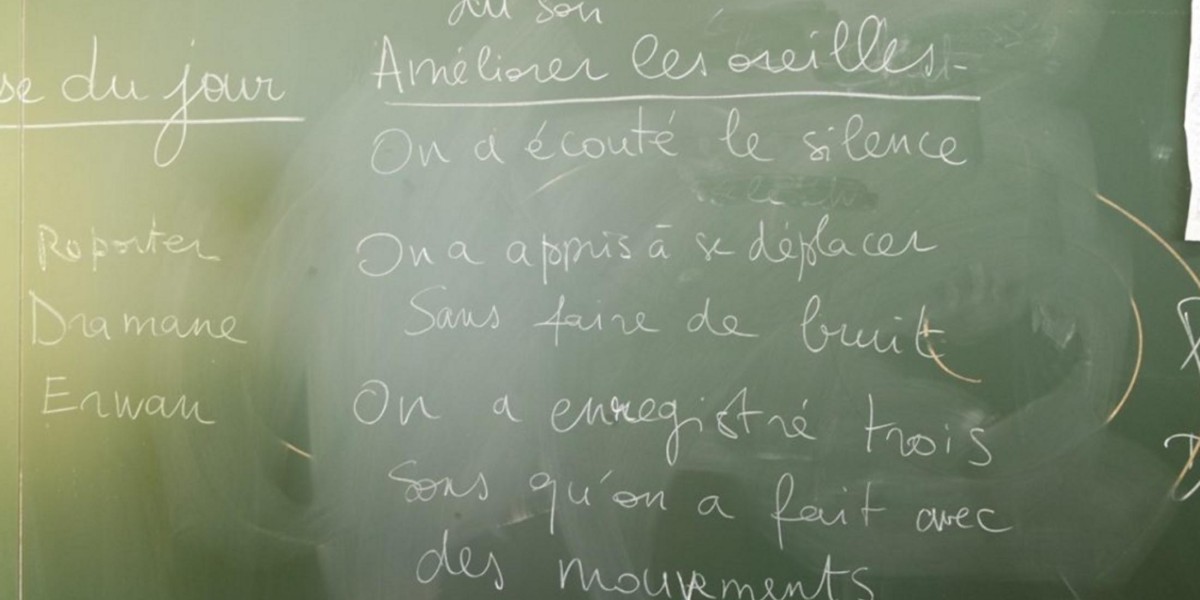 du son
du jour
Améliorer les oreilles.
On a écouté le silence
Reporter
On a appris à se déplacer
Dramane
Sans faire de bruit
Erwan
On a enregistré trois
Sons qu'on a fait avec
des mouvements